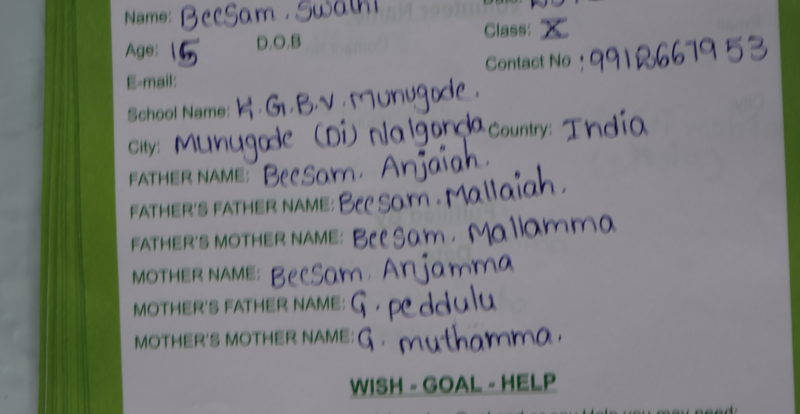 Name: Beesam. Swathi
Age: 15 D.O.B Class: X
E-mail: Contact No : 9918667953
School Name: K.G.B.V. Munugode.
City: Munugode (Di) Nalgonda Country: India
FATHER NAME: Beesam. Anjaiah.
FATHER'S FATHER NAME: Beesam. Mallaiah.
FATHER'S MOTHER NAME: Beesam. Mallamma
MOTHER NAME: Beesam. Anjamma
MOTHER'S FATHER NAME: G. peddulu
MOTHER'S MOTHER NAME: G. muthamma.
WISH - GOAL - HELP